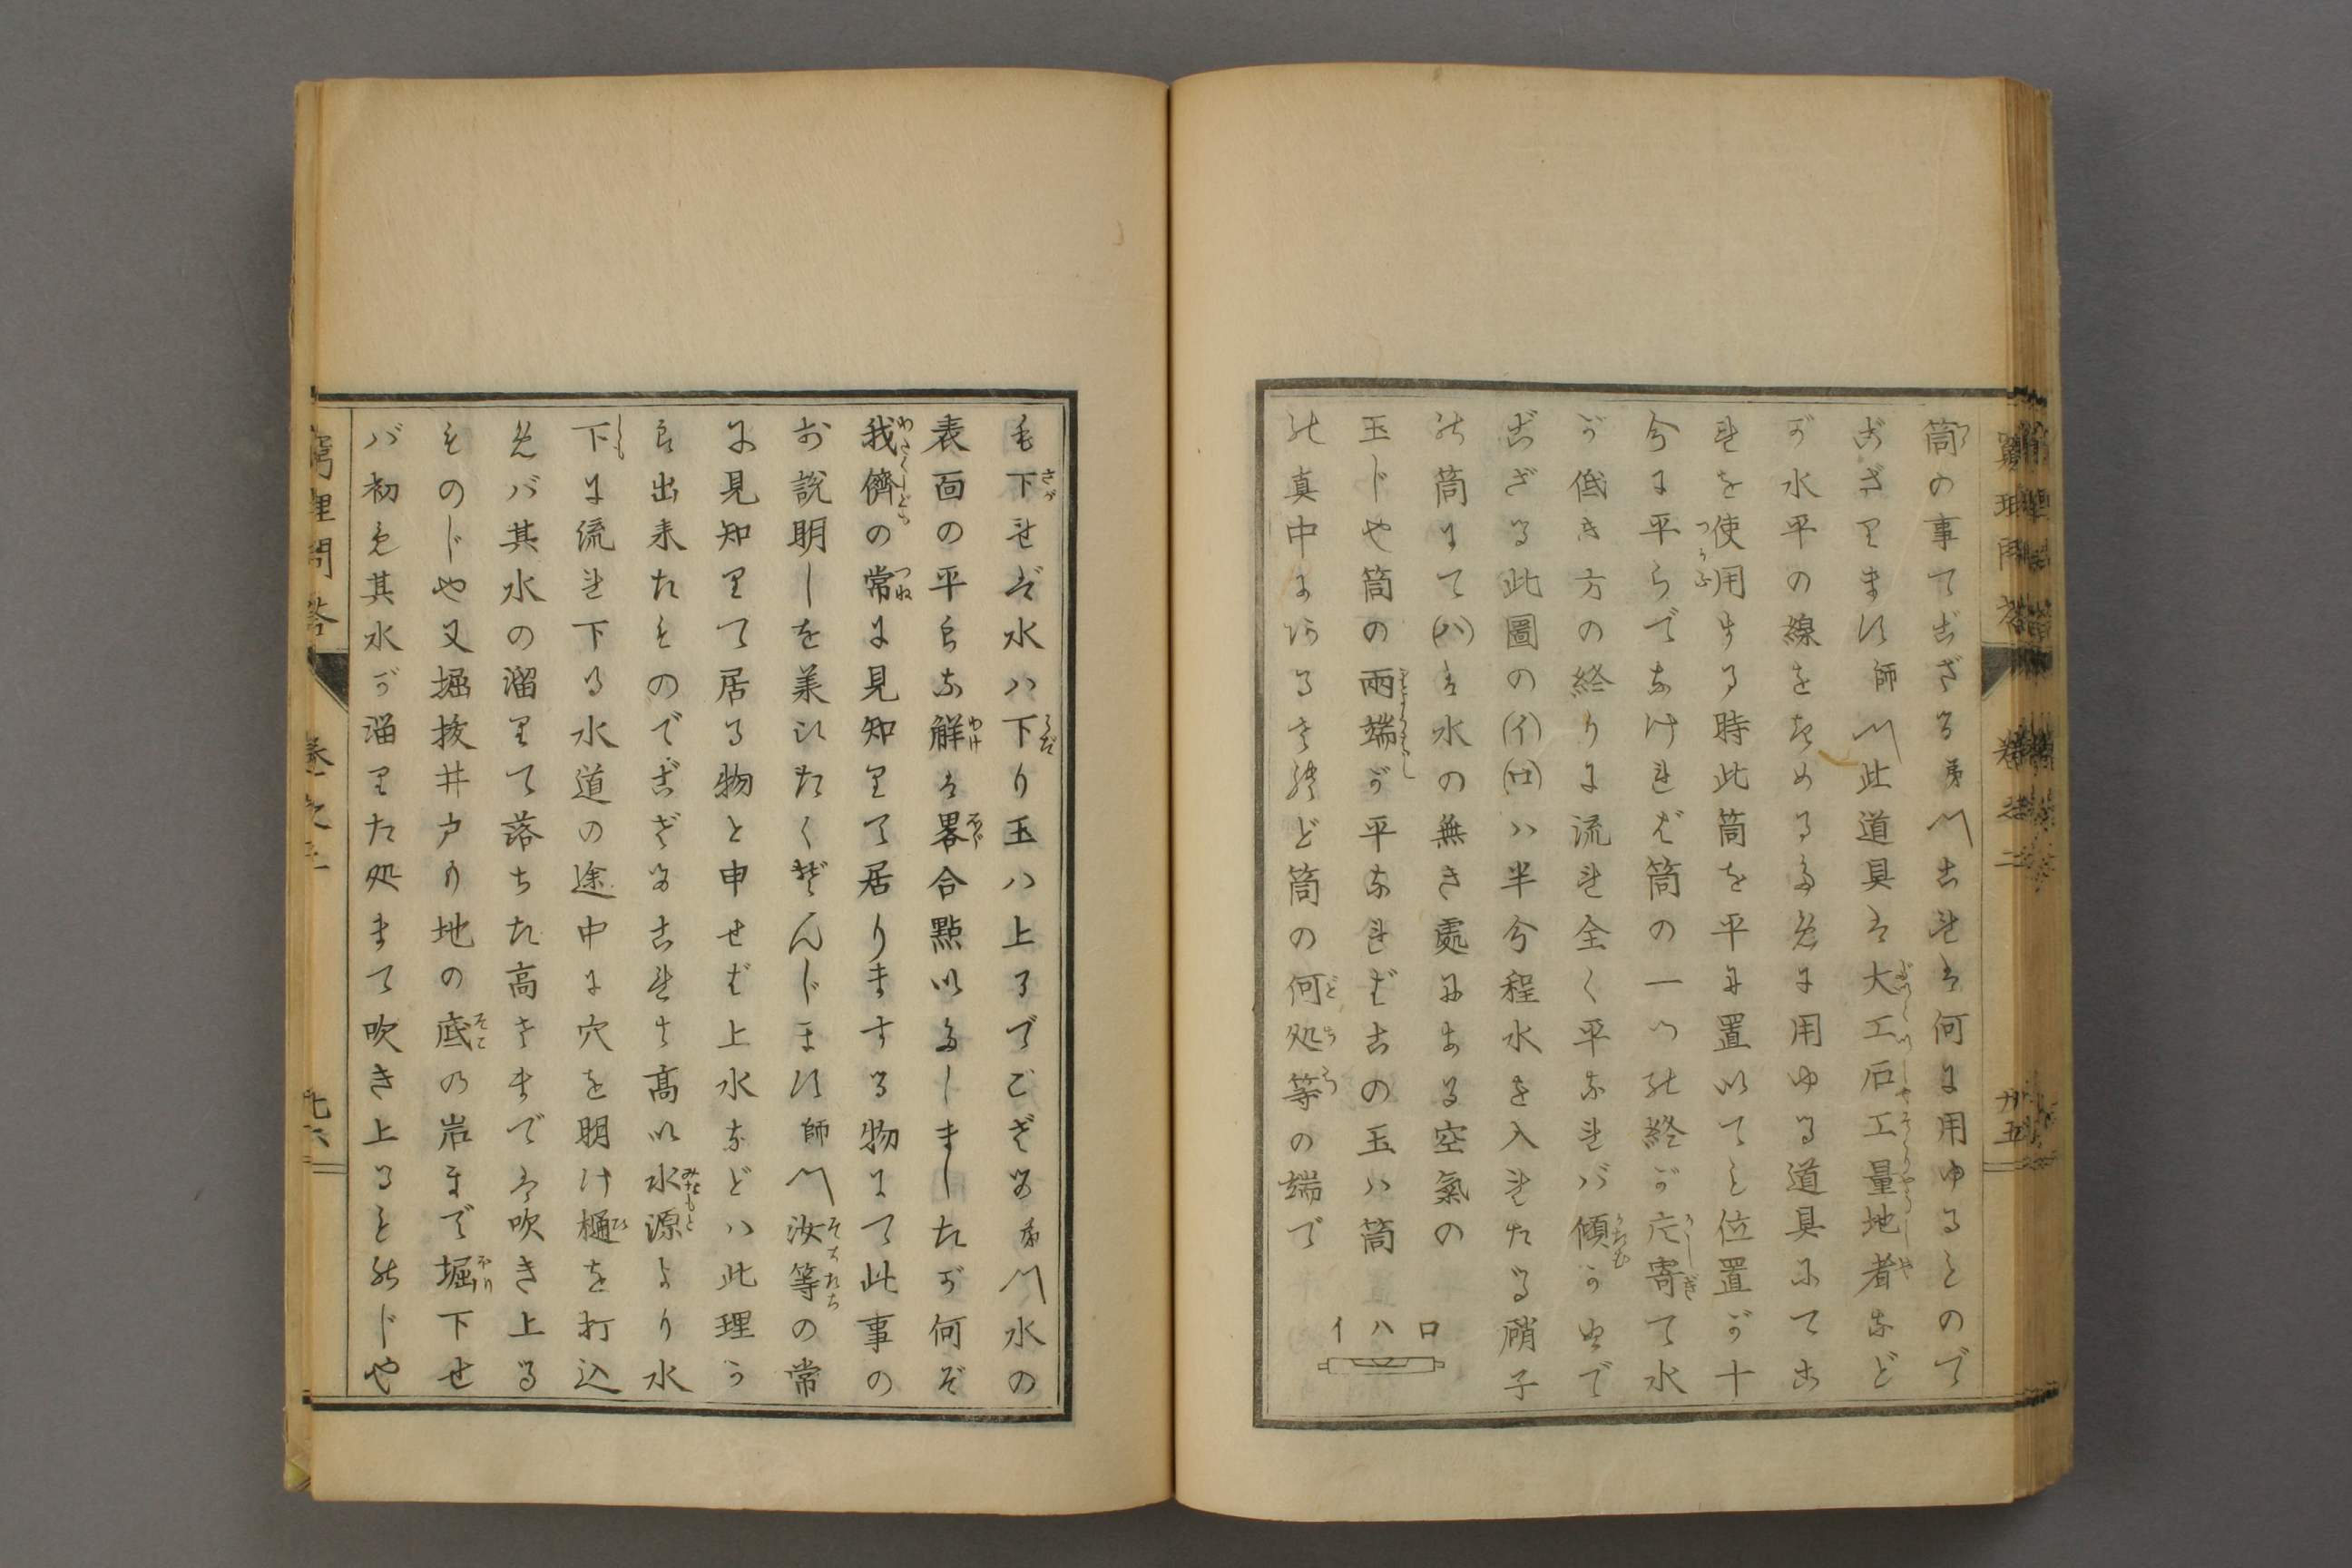 筒の事てござる弟〽これは何に用ゆるもので
ござりまする師〽此道具は大工石工量地者など
が水平の線をきめるために用ゆる道具にてこ
れを使用する時此筒を平に置いてもし位置が十
分に平らでなければ筒の一つの終が片寄て水
が低き方の終りに流れ全く平なれバ傾かぬで
ござる此圖の(イ)(ロ)ハ半分程水を入れたる硝子
の筒にて(ハ)は水の無き處にある空氣の
玉じや筒の両端が平なればこの玉ハ筒
の真中にあるされど筒の何処等の端で
ロ
ハ
イ
も下れば水ハ下り玉ハ上るでござる弟〽水の
表面の平らな解は畧合點いたしましたが何ぞ
我儕の常に見知りて居りまする物にて此事の
お説明しを業いたくぞんじます師〽汝等の常
に見知りて居る物と申せば上水などハ此理か
ら出来たものでござるこれは高い水源より水
下に流れ下る水道の途中に穴を明け樋を打込
めバ其水の溜りて落ちた高さまでは吹き上る
ものじや又堀抜井戸も地の底の岩まで堀下せ
バ初め其水が溜りた処まで吹き上るものじや
窮理問答
巻之二
廿五